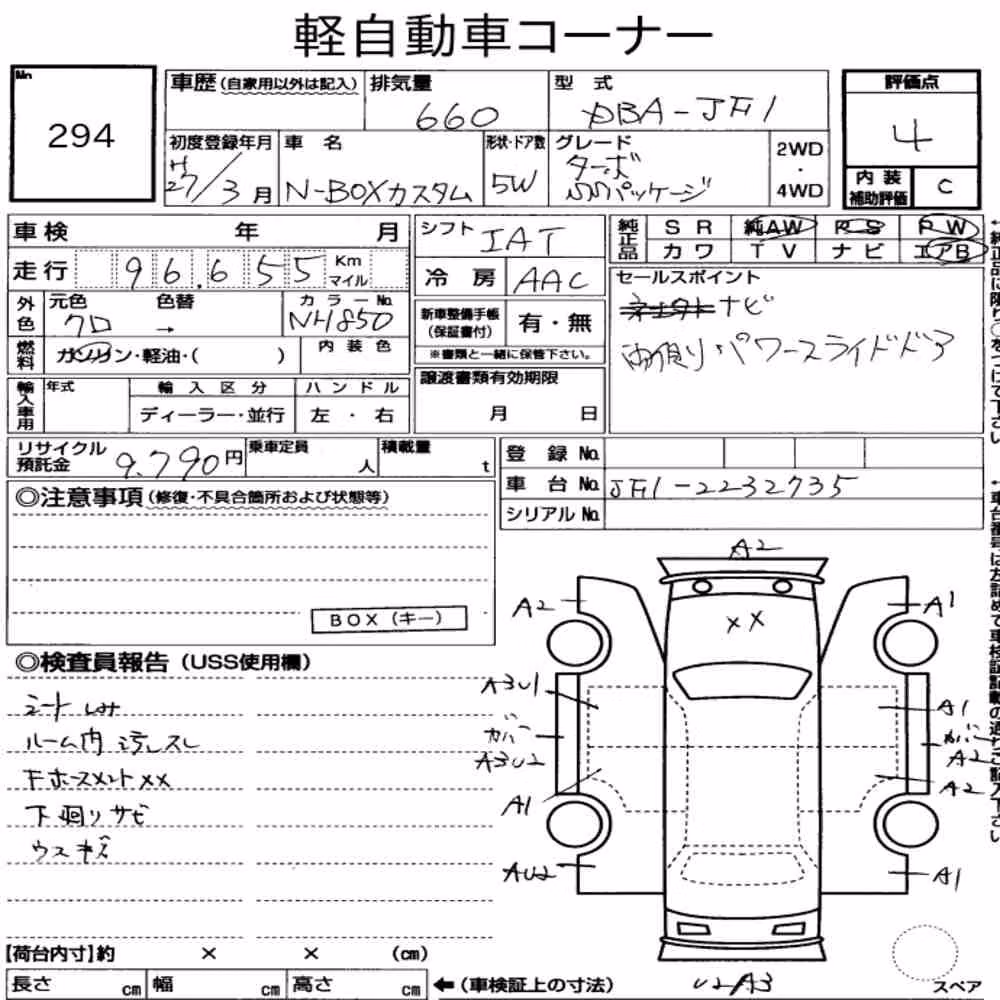 軽自動車コーナー
No.
294
車歴(自家用以外は記入)
排気量
660
型式
DBA-JF1
評価点
4
内装補助評価
C
初度登録年月
H27/3月
車名
N-BOXカスタム
形状・ドア数
5W
グレード
ターボ
SSパッケージ
2WD
・
4WD
車検 年 月
走行 96,655 Km マイル
シフト IAT
冷房 AAC
純正品
SR 純AW PS PW
カワ TV ナビ エアB
セールスポイント
ナビ
両側パワースライドドア
外色
元色 クロ
色替 →
カラーNo. NH850
新車整備手帳(保証書付) 有・無
※書類と一緒に保管下さい。
燃料
ガソリン・軽油・( )
内装色
譲渡書類有効期限
月 日
輸入車用
年式
輸入区分
ディーラー・並行
ハンドル
左・右
リサイクル預託金 9.790円
乗車定員 人
積載量 t
登録No.
車台No. JF1-2232735
シリアルNo.
◎注意事項(修復・不具合箇所および状態等)
BOX(キー)
◎検査員報告(USS使用欄)
シートしみ
ルーム内汚しスレ
Fホースメント××
下廻りサビ
ウスキズ
A2
A2
A1
××
A3U1
A1
ガバ
ガバ
A3U2
A2
A1
A2
AU2
A1
U2A3
スペア
【荷台内寸】約 × × (cm)
長さ cm 幅 cm 高さ cm ←(車検証上の寸法)